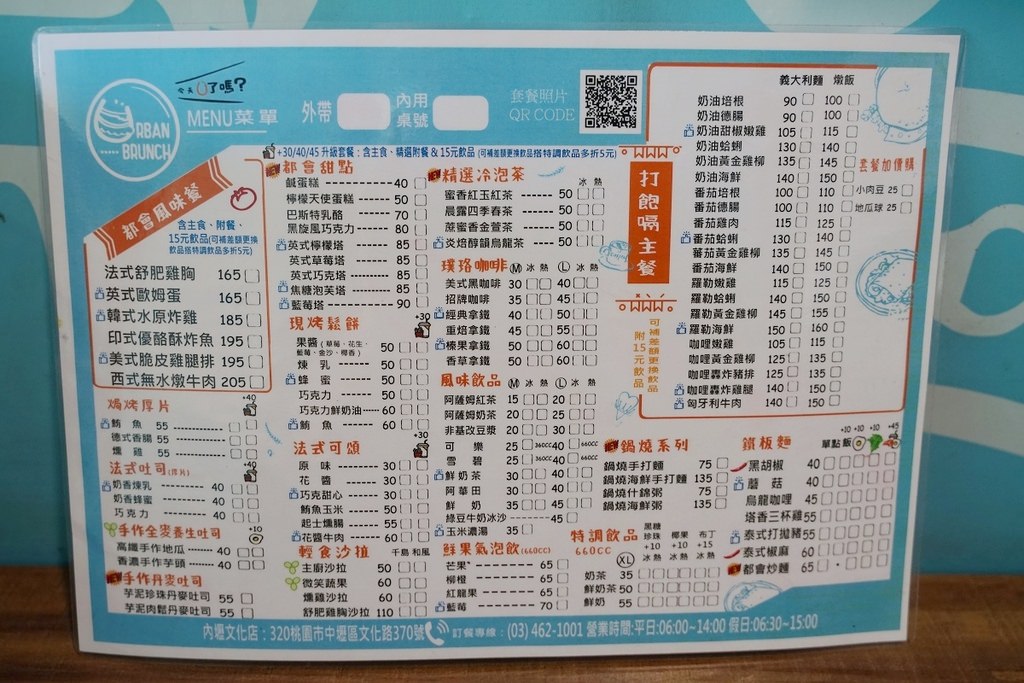 今天 了嗎?
URBAN
BRUNCH
MENU菜單
外帶
內用
桌號
套餐照片
QR CODE
+30/40/45 升級套餐:含主食、精選附餐 & 15元飲品 (可補差額更換飲品搭特調飲品多折5元)
都會風味餐
含主食、附餐、
15元飲品(可補差額更換
飲品搭特調飲品多折5元)
法式舒肥雞胸 165
英式歐姆蛋 165
韓式水原炸雞 185
印式優酪酥炸魚 195
美式脆皮雞腿排 195
西式無水燉牛肉 205
焗烤厚片 +40
鮪魚 55
德式香腸 55
燻雞 55
法式吐司(厚片) +40
奶香煉乳 40
奶香蜂蜜 40
巧克力 40
手作全麥養生吐司 +10
高纖手作地瓜 40
香濃手作芋頭 40
NEW 手作丹麥吐司
芋泥珍珠丹麥吐司 55
芋泥肉鬆丹麥吐司 55
NEW 都會甜點
鹹蛋糕 40
檸檬天使蛋糕 50
巴斯特乳酪 70
黑旋風巧克力 80
英式檸檬塔 85
英式草莓塔 85
英式巧克塔 85
焦糖泡芙塔 85
藍莓塔 90
現烤鬆餅 +30
果醬(草莓、花生、
藍莓、金沙、椰香) 50
煉乳 50
蜂蜜 50
巧克力 50
巧克力鮮奶油 60
鮪魚 60
法式可頌 +30
原味 30
花醬 30
巧克甜心 30
鮪魚玉米 50
起士燻腸 55
花醬牛肉 60
輕食沙拉 千島 和風
主廚沙拉 50
微笑蔬果 60
燻雞沙拉 60
舒肥雞胸沙拉 110
NEW 精選冷泡茶 冰 熱
蜜香紅玉紅茶 50
晨露四季春茶 50
蔗蜜香金萱茶 50
炎焙醇韻烏龍茶 50
璞珞咖啡 M 冰 熱 L 冰 熱
美式黑咖啡 30 40
招牌咖啡 35 45
經典拿鐵 40 50
重焙拿鐵 45 55
榛果拿鐵 50 60
香草拿鐵 50 60
風味飲品 M 冰 熱 L 冰 熱
阿薩姆紅茶 15 20
阿薩姆奶茶 20 25
非基改豆漿 20 30
可樂 25 360CC 40 660CC
雪碧 25 360CC 40 660CC
鮮奶茶 30 40
阿華田 30 40
鮮奶 35 45
綠豆牛奶冰沙 45
玉米濃湯 35
鮮果氣泡飲(660CC)
芒果 65
柳橙 65
紅龍果 65
藍莓 70
打飽嗝主餐
可補差額更換飲品
附15元飲品
義大利麵 燉飯
奶油培根 90 100
奶油德腸 90 100
奶油甜椒嫩雞 105 115
奶油蛤蜊 130 140
奶油黃金雞柳 135 145
奶油海鮮 140 150
番茄培根 100 110
番茄德腸 100 110
番茄雞肉 115 125
番茄蛤蜊 130 140
蕃茄黃金雞柳 135 145
番茄海鮮 140 150
羅勒嫩雞 115 125
羅勒蛤蜊 140 150
羅勒黃金雞柳 145 155
羅勒海鮮 150 160
咖哩嫩雞 105 115
咖哩黃金雞柳 125 135
咖哩轟炸豬排 125 135
咖哩轟炸雞腿 140 150
匈牙利牛肉 140 150
套餐加價購
小肉豆 25
地瓜球 25
NEW 鍋燒系列
鍋燒手打麵 75
鍋燒海鮮手打麵 135
鍋燒什錦粥 75
鍋燒海鮮粥 135
特調飲品
660CC
XL
黑糖珍珠 +10 冰 熱
椰果 +10 冰 熱
布丁 +15 冰 熱
奶茶 35
鮮奶茶 50
鮮奶 55
鐵板麵 單點 飯 +10 +10 +10 +45
黑胡椒 40
蘑菇 40
烏龍咖哩 45
塔香三杯雞 55
泰式打拋豬 55
泰式椒麻 60
NEW 都會炒麵 65
內壢文化店:320桃園市中壢區文化路370號 訂餐專線:(03) 462-1001 營業時間:平日:06:00~14:00 假日:06:30~15:00